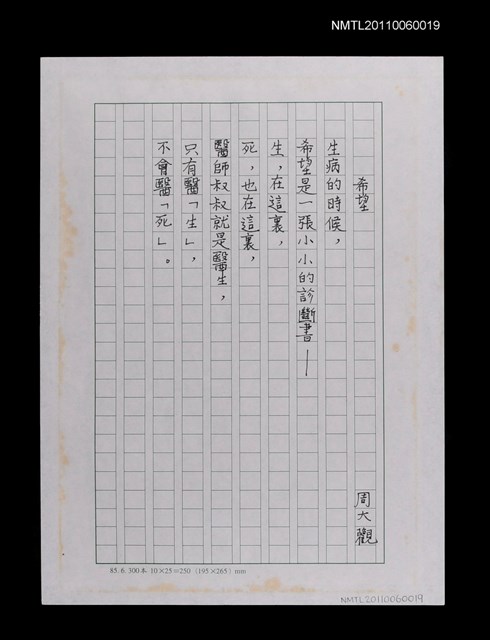 NMTL20110060019
希望
周大觀
生病的時候，
希望是一張小小的診斷書—
生，在這裏，
死，也在這裏，
醫師叔叔就是醫生，
只有醫「生」，
不會醫「死」。
85.6.300本 10×25=250 (195×265) mm
NMTL20110060019